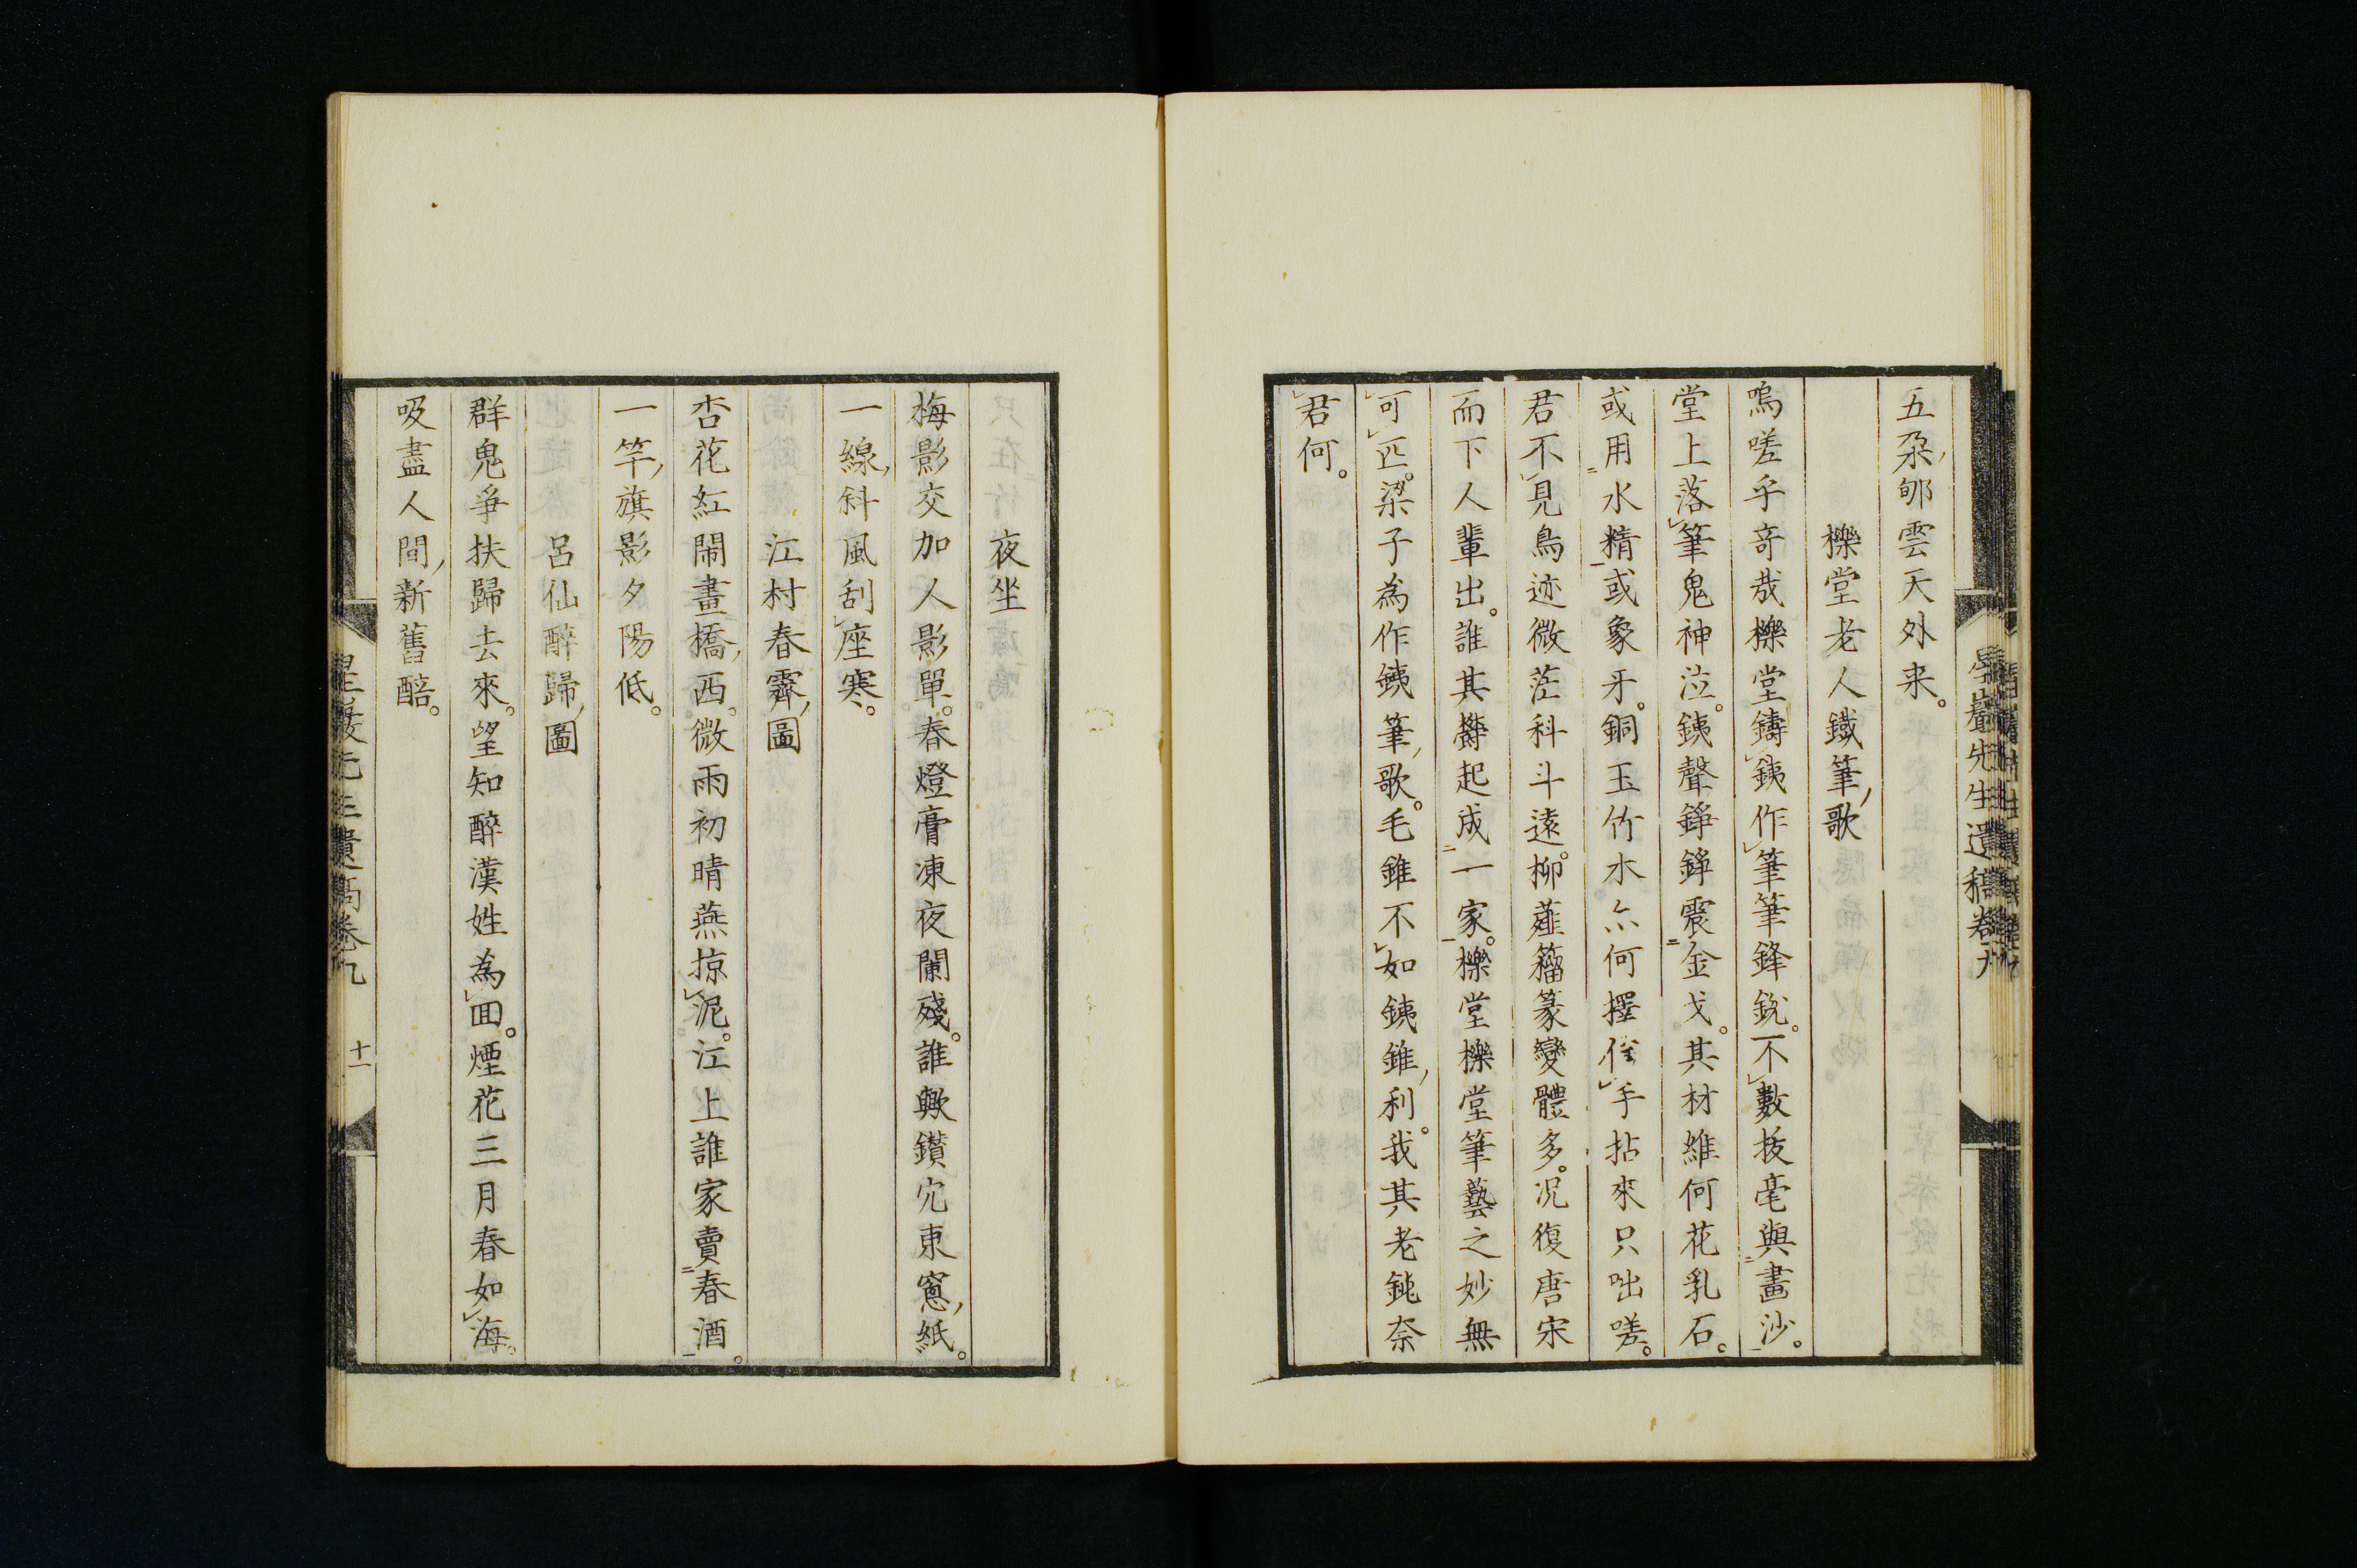 五朶郇雲天外来。
櫟堂老人鐵筆歌
嗚嗟乎奇哉櫟堂鑄鉄作筆筆鋒銳。不數拔毫與畫沙。
堂上落筆鬼神泣。鉄聲錚錚震金戈。其材維何花乳石。
或用水精或象牙。銅玉竹木亦何擇信手拈來只咄嗟。
君不見鳥迹微茫科斗遠。柳薤籀篆變體多。況復唐宋
而下人輩出。誰其欝起成一家。櫟堂櫟堂筆藝之妙無
可匹。梁子為作鉄筆歌。毛錐不如鉄錐利。我其老鈍奈
君何。
星巖先生遺稿卷九
夜坐
梅影交加人影單。春燈膏凍夜闌殘。誰歟鑚穴東窻紙。
一線斜風刮座寒。
江村春霽圖
杏花紅鬧畫橋西。微雨初晴燕掠泥。江上誰家賣春酒。
一竿旗影夕陽低。
呂仙醉歸圖
群鬼爭扶歸去來。望知醉漢姓為回。煙花三月春如海。
吸盡人間新舊醅。
星巖先生遺稿卷九 十一